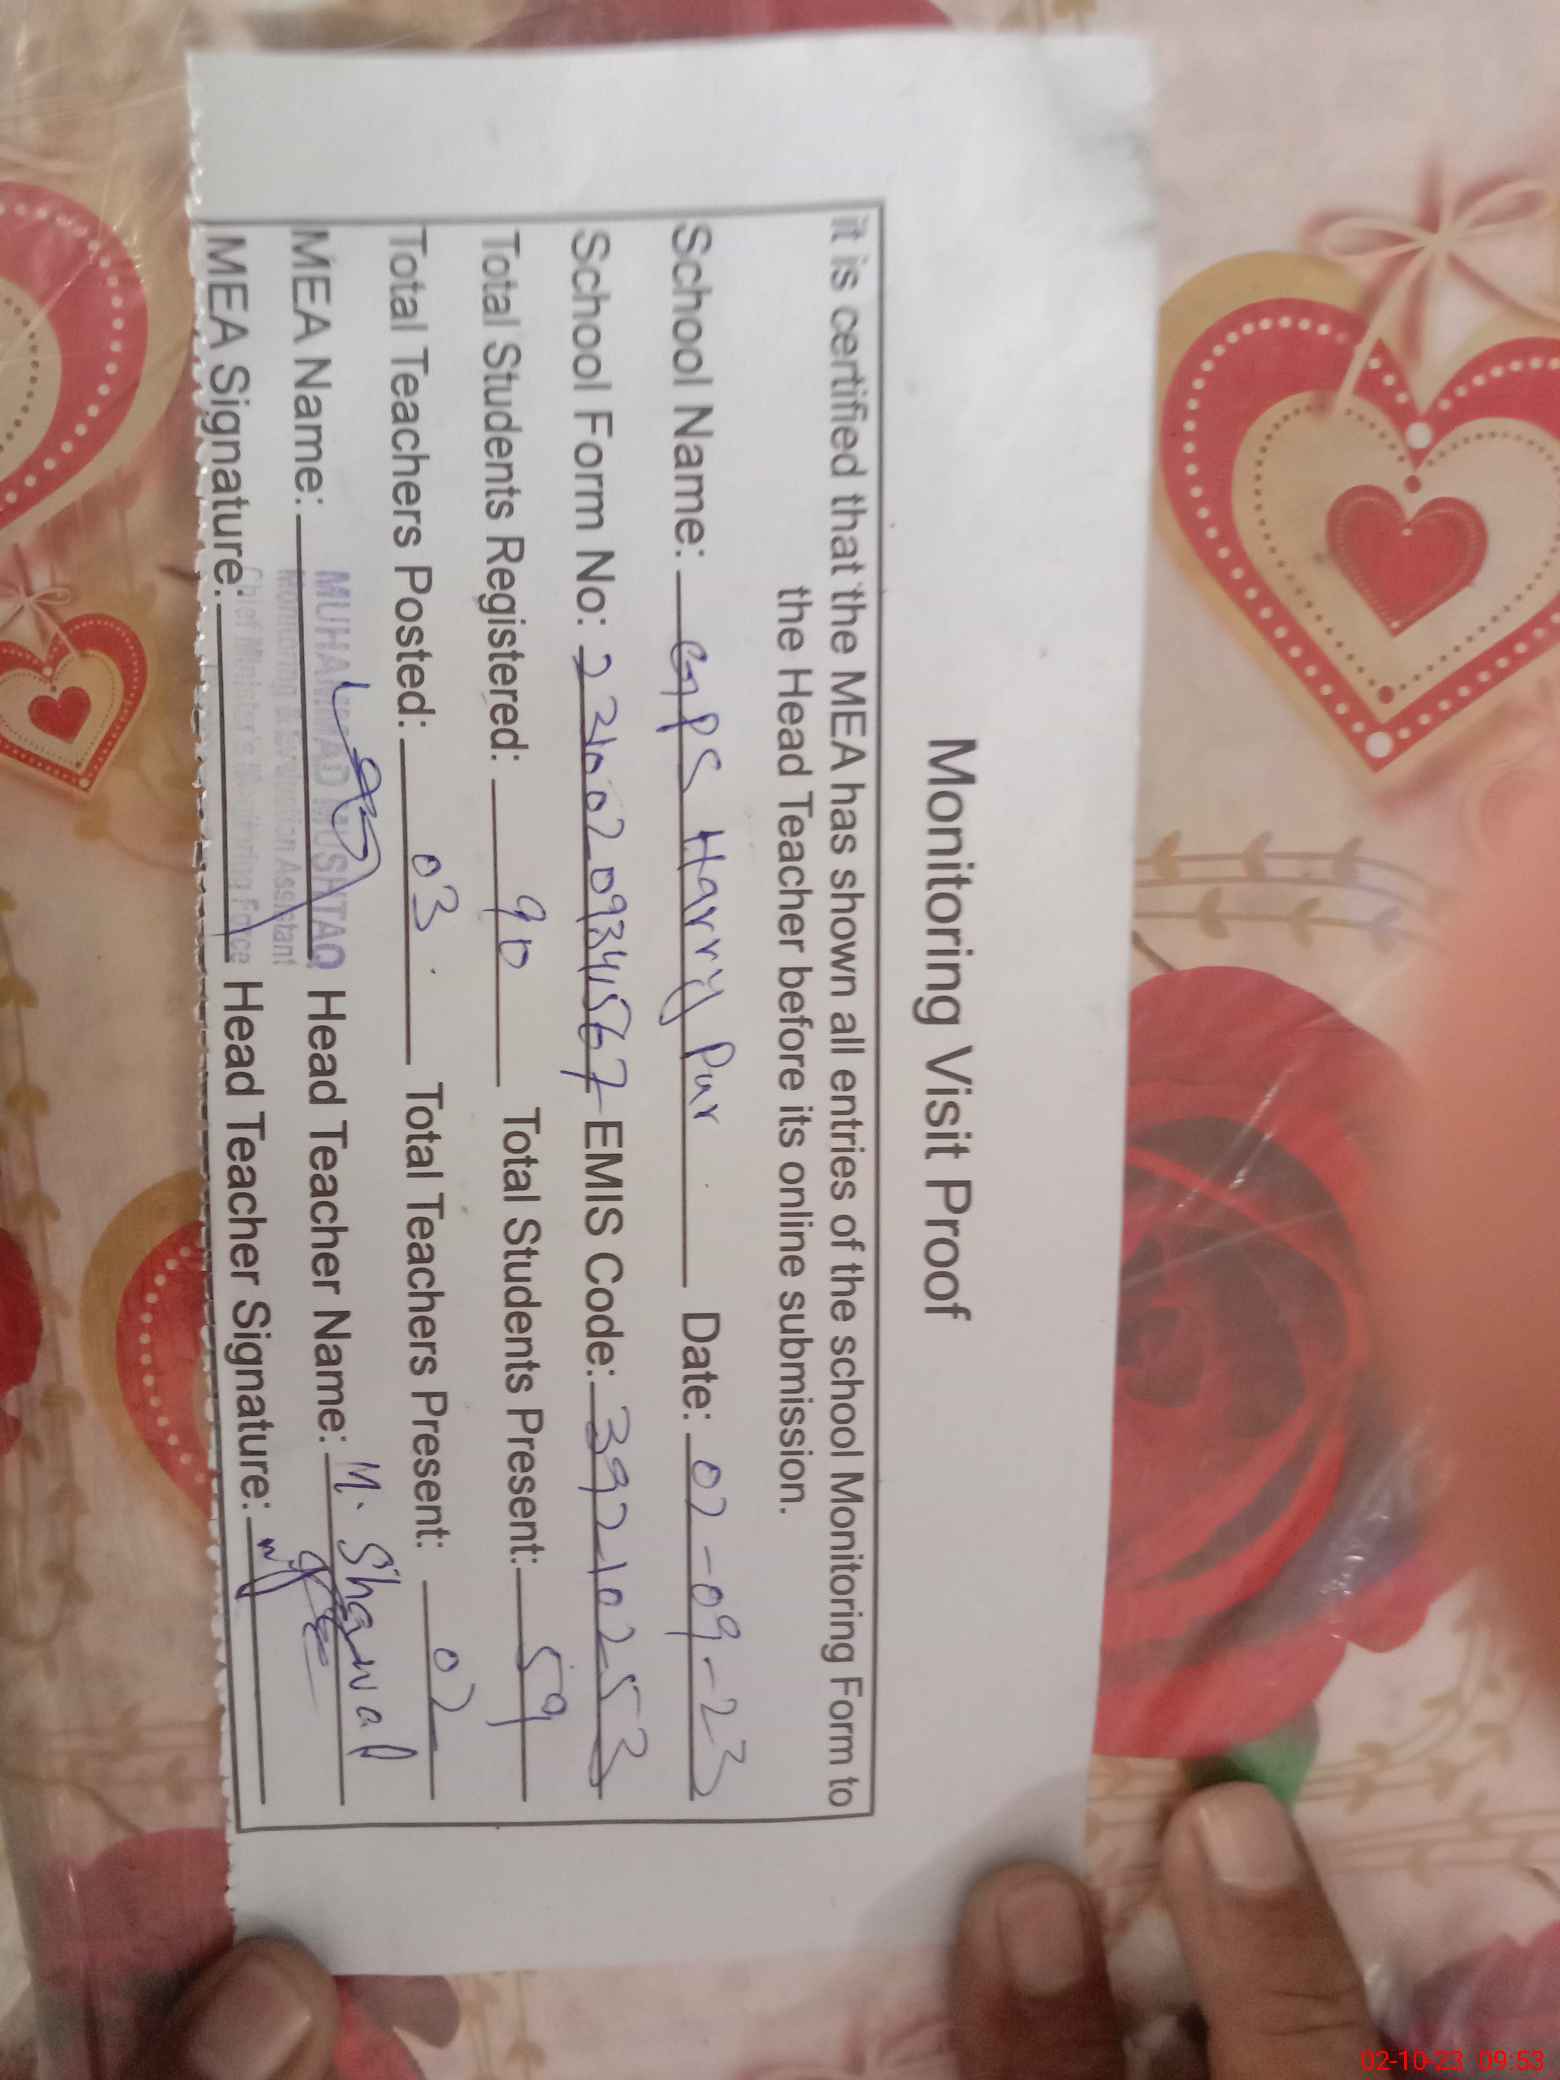 Monitoring Visit Proof
it is certified that the MEA has shown all entries of the school Monitoring Form to
the Head Teacher before its online submission.
School Name: GPS Harry Pur Date: 02-09-23
School Form No: 23100209341567 EMIS Code: 39210253
Total Students Registered: 90 Total Students Present: 59
Total Teachers Posted: 03 Total Teachers Present: 02
MEA Name: MUHAMMAD MUSHTAQ Head Teacher Name: M. Shawal
Monitoring & Evaluation Assistant
MEA Signature: Chief Minister's Monitoring Force Head Teacher Signature:
02-10-23 09:53